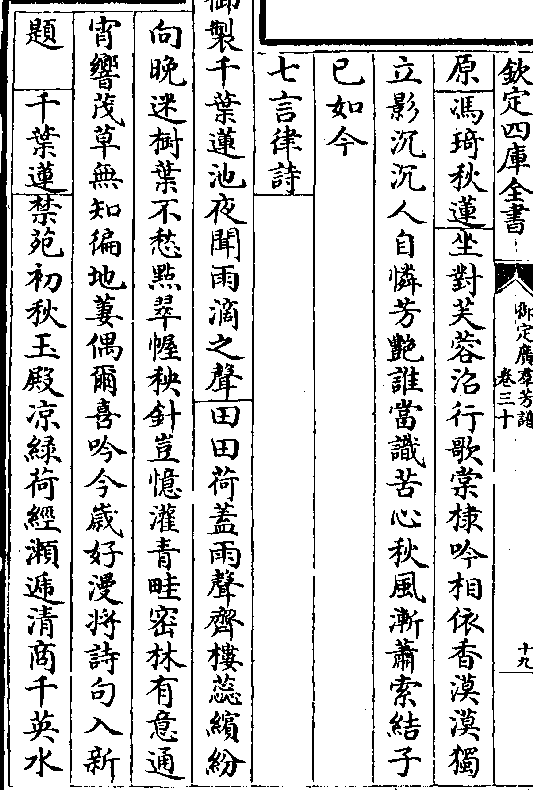 欽定四庫全書
御定廣群芳譜
卷三十
十九
原馮琦秋蓮坐對芙蓉沼行歌棠棣吟相依香漠漠獨
立影沉沉人自憐芳艷誰當識苦心秋風漸蕭索結子
已如今
七言律詩
御製千葉蓮池夜聞雨滴之聲田田荷蓋雨聲齊樓蕊繽紛
向晚迷樹葉不愁點翠幄秧針豈憶灌青畦密林有意通
宵響茂草無知徧地萋偶爾喜吟今歲好漫將詩句入新
題 千葉蓮禁苑初秋玉殿凉緑荷經瀬遞清商千英水